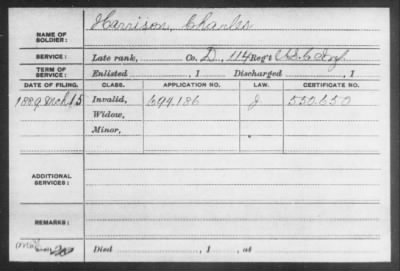 NAME OF SOLDIER: Harrison, Charles
SERVICE: Late rank, Co. D, 114 Reg't U.S.C. Inf.
TERM OF SERVICE: Enlisted , 1 Discharged , 1
DATE OF FILING. CLASS. APPLICATION NO. LAW. CERTIFICATE NO.
1889 Mch 15 Invalid, 694.186 J 550.650
Widow,
Minor,
ADDITIONAL SERVICES:
REMARKS:
Died , 1 , at